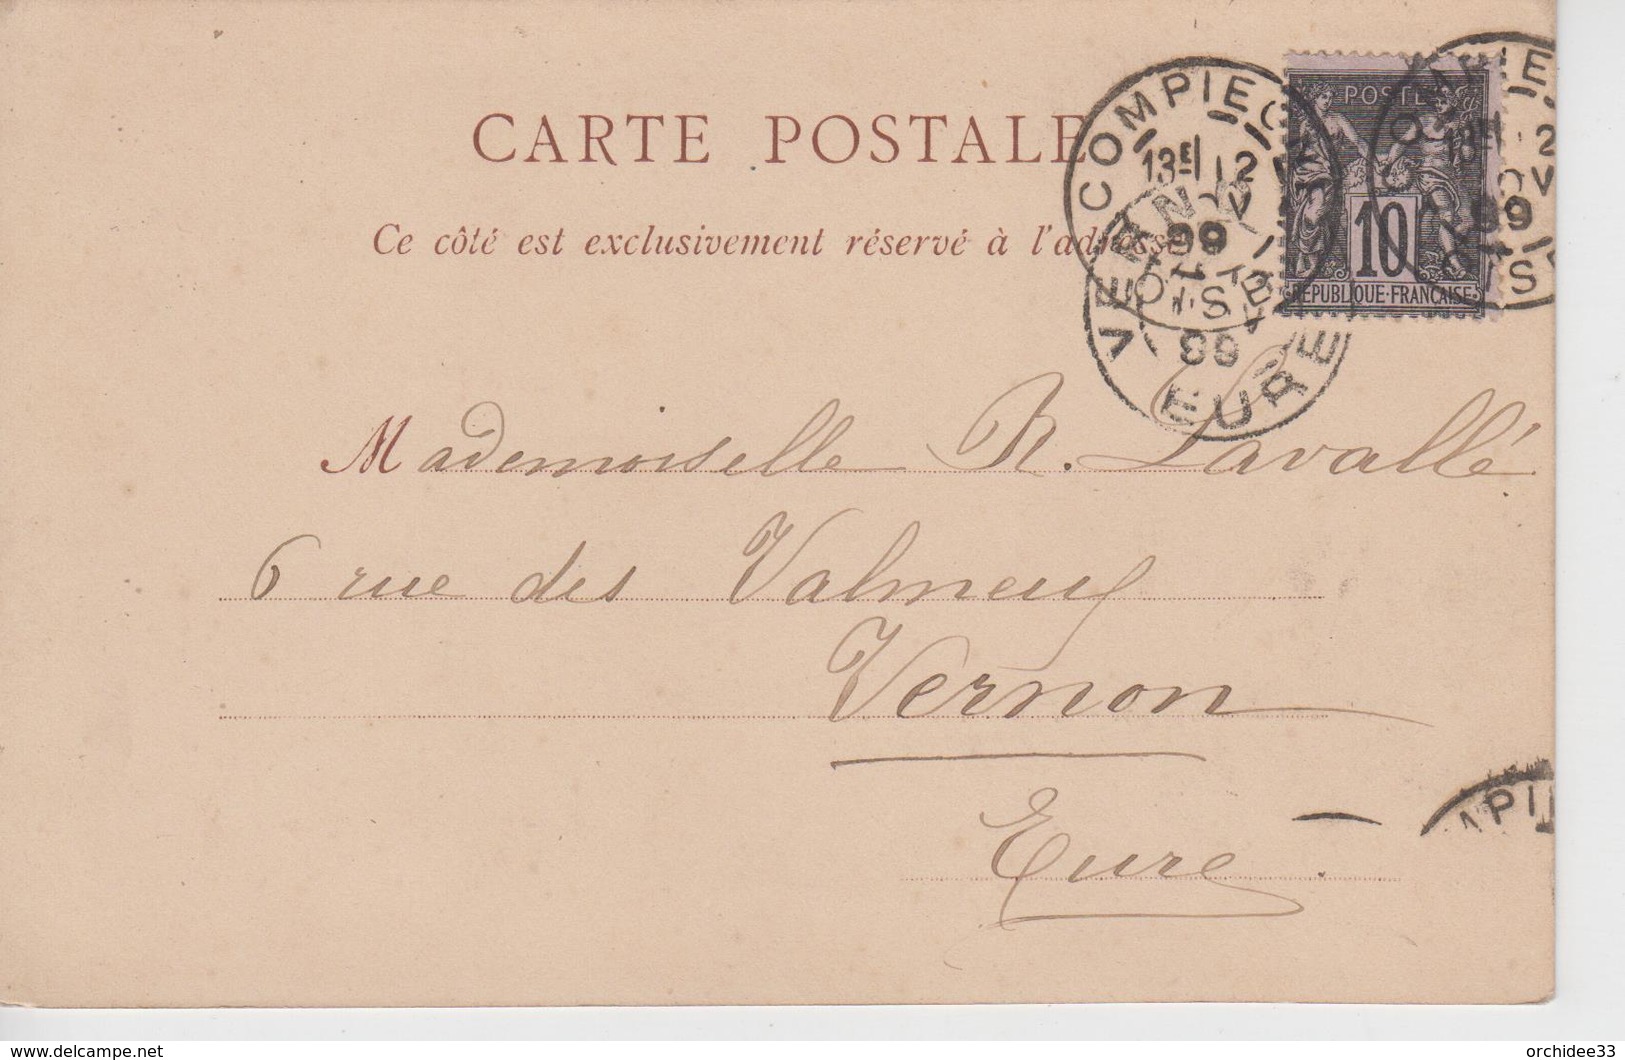 CARTE POSTALE
Ce côté est exclusivement réservé à l'adresse
COMPIEG
13E 12
99
OISE
VERN
99
EURE
POSTE
10
REPUBLIQUE·FRANÇAISE
99
Mademoiselle R. Lavallé
6 rue des Valmeux
Vernon
Eure
APIE
delcampe.net
orchidee33